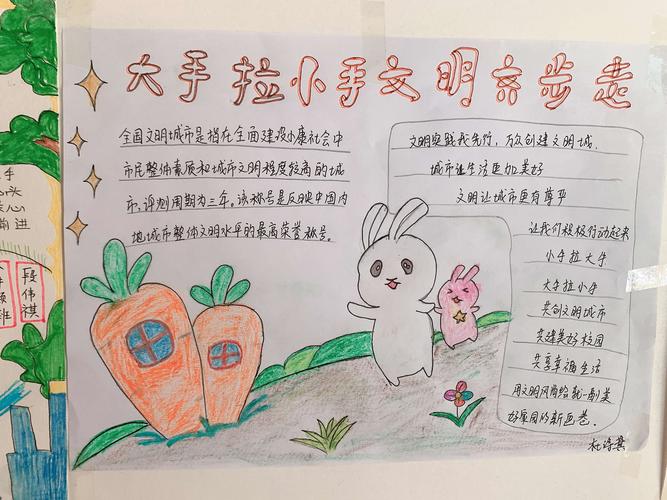 大手拉小手文明齐步走
全国文明城市是指在全面建设小康社会中
市民整体素质和城市文明程度较高的城
市,评测周期为三年。该称号是反映中国内
地城市整体文明水平的最高荣誉称号。
文明实践我先行,万众创建文明城.
城市让生活更加美好
文明让城市更有尊严
让我们积极行动起来
小手拉大手
大手拉小手
共创文明城市
共建美好校园
共享幸福生活
用文明风尚绘就一副美
好家园的新画卷.
手
心
前进
段伟祺